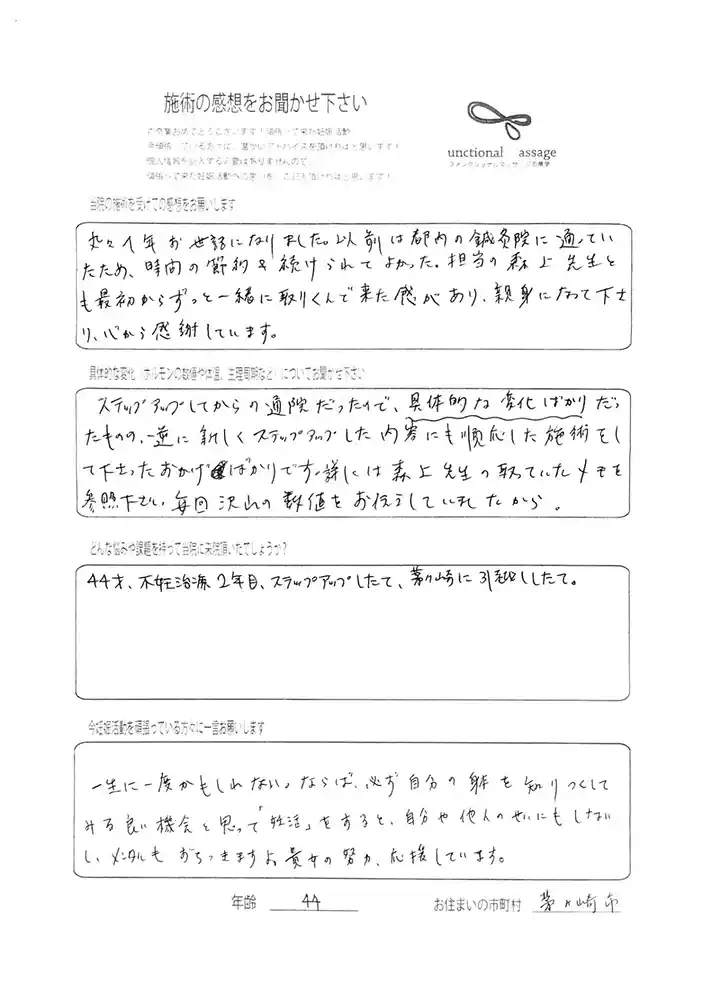 施術の感想をお聞かせ下さい
ご卒業おめでとうございます！頑張って来た妊娠活動
今頑張っている方々に、温かいアドバイスを頂ければと思います！
個人情報を記入する必要はありませんので、
頑張って来た妊娠活動への思いを、ご記入頂ければと思います！
unctional assage
ファンクショナルマッサージ治療室
当院の施術を受けての感想をお願いします
丸々1年お世話になりました。以前は都内の鍼灸院に通ってい
たため、時間の節約&続けられてよかった。担当の森上先生と
も最初からずっと一緒に取りくんで来た感があり、親身になって下さ
り、心から感謝しています。
具体的な変化 ホルモンの数値や体温、生理周期など）についてお聞かせ下さい
ステップアップしてからの通院だったので、具体的な変化ばかりだっ
たものの、逆に新しくステップアップした内容にも順応した施術をし
て下さったおかげばかりです。詳しくは森上先生の取っていたメモを
参照下さい、毎回沢山の数値をお伝えしていましたから。
どんな悩みや課題を持って当院に来院頂いたでしょうか？
44才、不妊治療2年目、ステップアップしたて、茅ヶ崎に引越ししたて。
今妊娠活動を頑張っている方々に一言お願いします
一生に一度かもしれない。ならば、必ず自分の身体を知りつくして
みる良い機会と思って「妊活」をすると、自分や他人のせいにもしない
し、メンタルもおちつきますよ。貴女の努力、応援しています。
年齢 44
お住まいの市町村 茅ヶ崎市